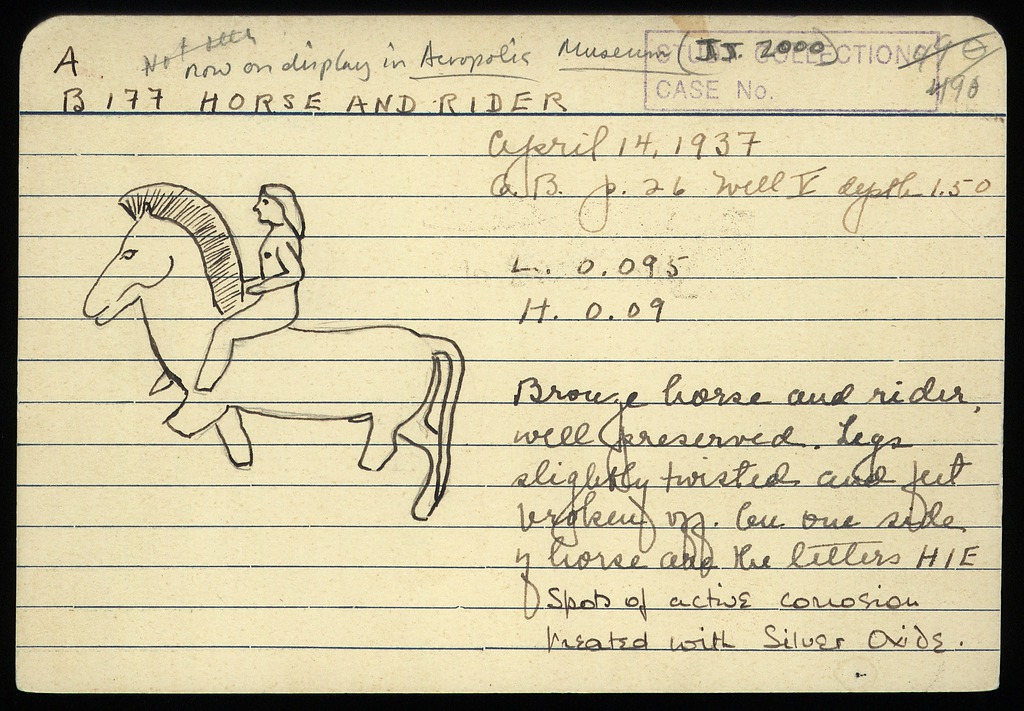 A. now on display in Acropolis Museum (II. 2000)
STUDY COLLECTION 490
CASE No. 490
B 177 HORSE AND RIDER
April 14, 1937
G.B. p. 26 Well V depth 1.50
L. 0.095
H. 0.09
Bronze horse and rider,
well preserved. Legs
slightly twisted and feet
broken off. On one side
of horse are the letters HIE
Spots of active corrosion
treated with Silver Oxide.